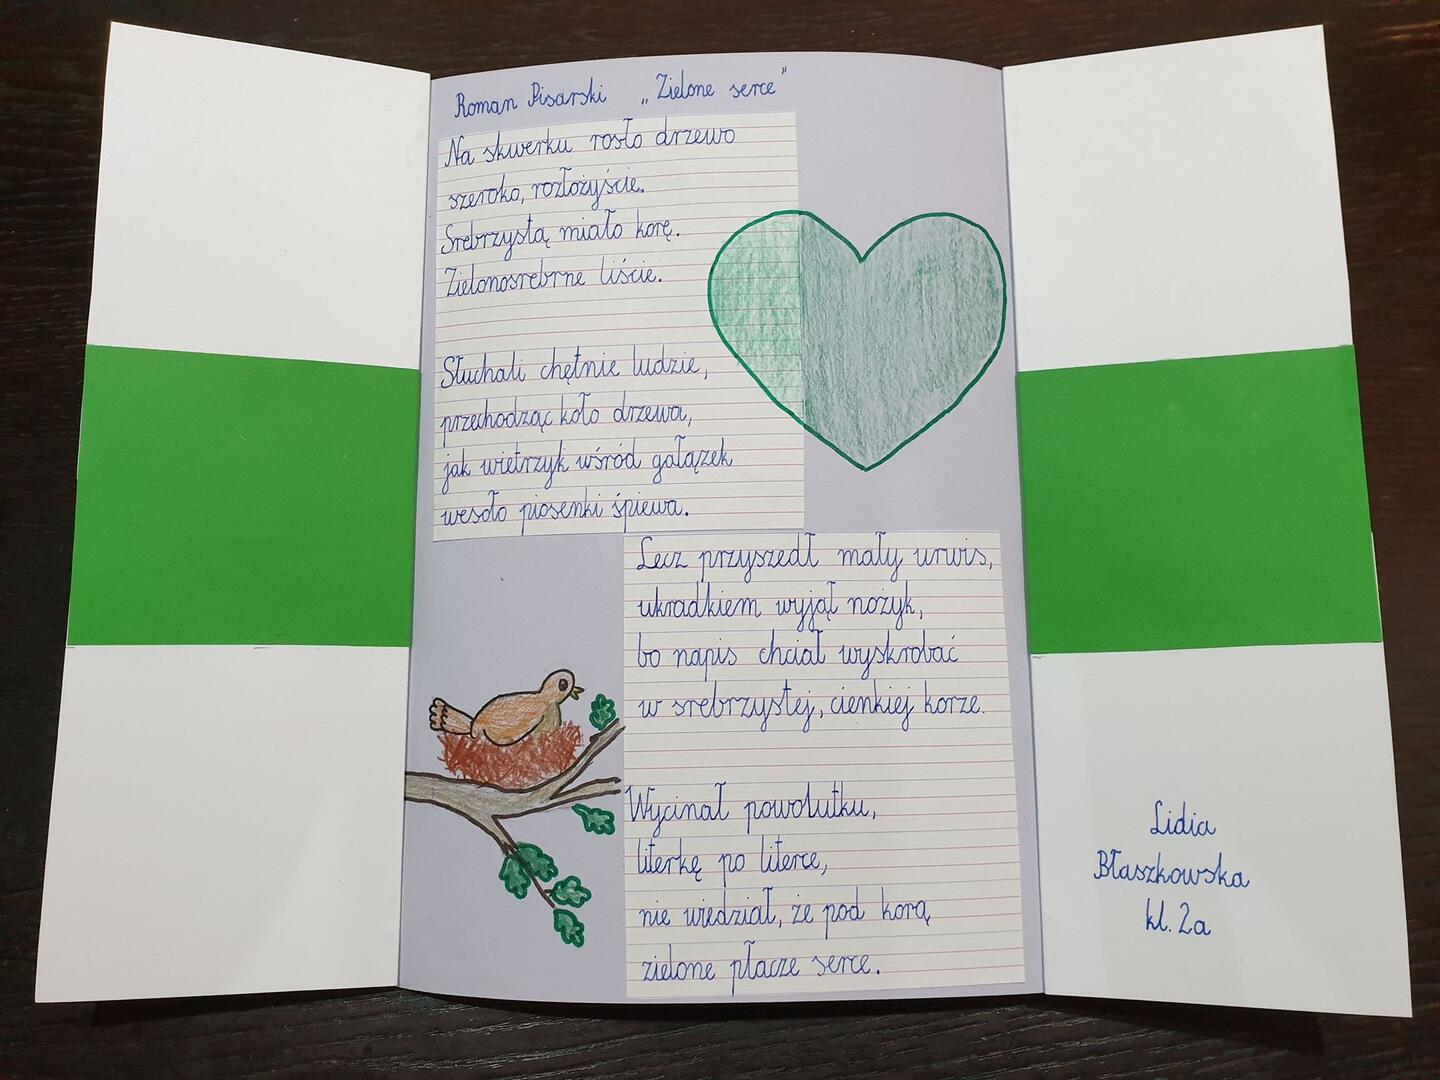 Roman Pisarski „Zielone serce"
Na skwerku rosło drzewo
szeroko, rozłożyście.
Srebrzystą miało korę.
Zielonosrebrne liście.
Słuchali chętnie ludzie,
przechodząc koło drzewa,
jak wietrzyk wśród gałązek
wesoło piosenki śpiewa.
Lecz przyszedł mały urwis,
ukradkiem wyjął nożyk,
bo napis chciał wyskrobać
w srebrzystej, cienkiej korze.
Wycinał powolutku,
literkę po literce,
nie wiedział, że pod korą
zielone płacze serce.
Lidia
Błaszkowska
kl. 2a